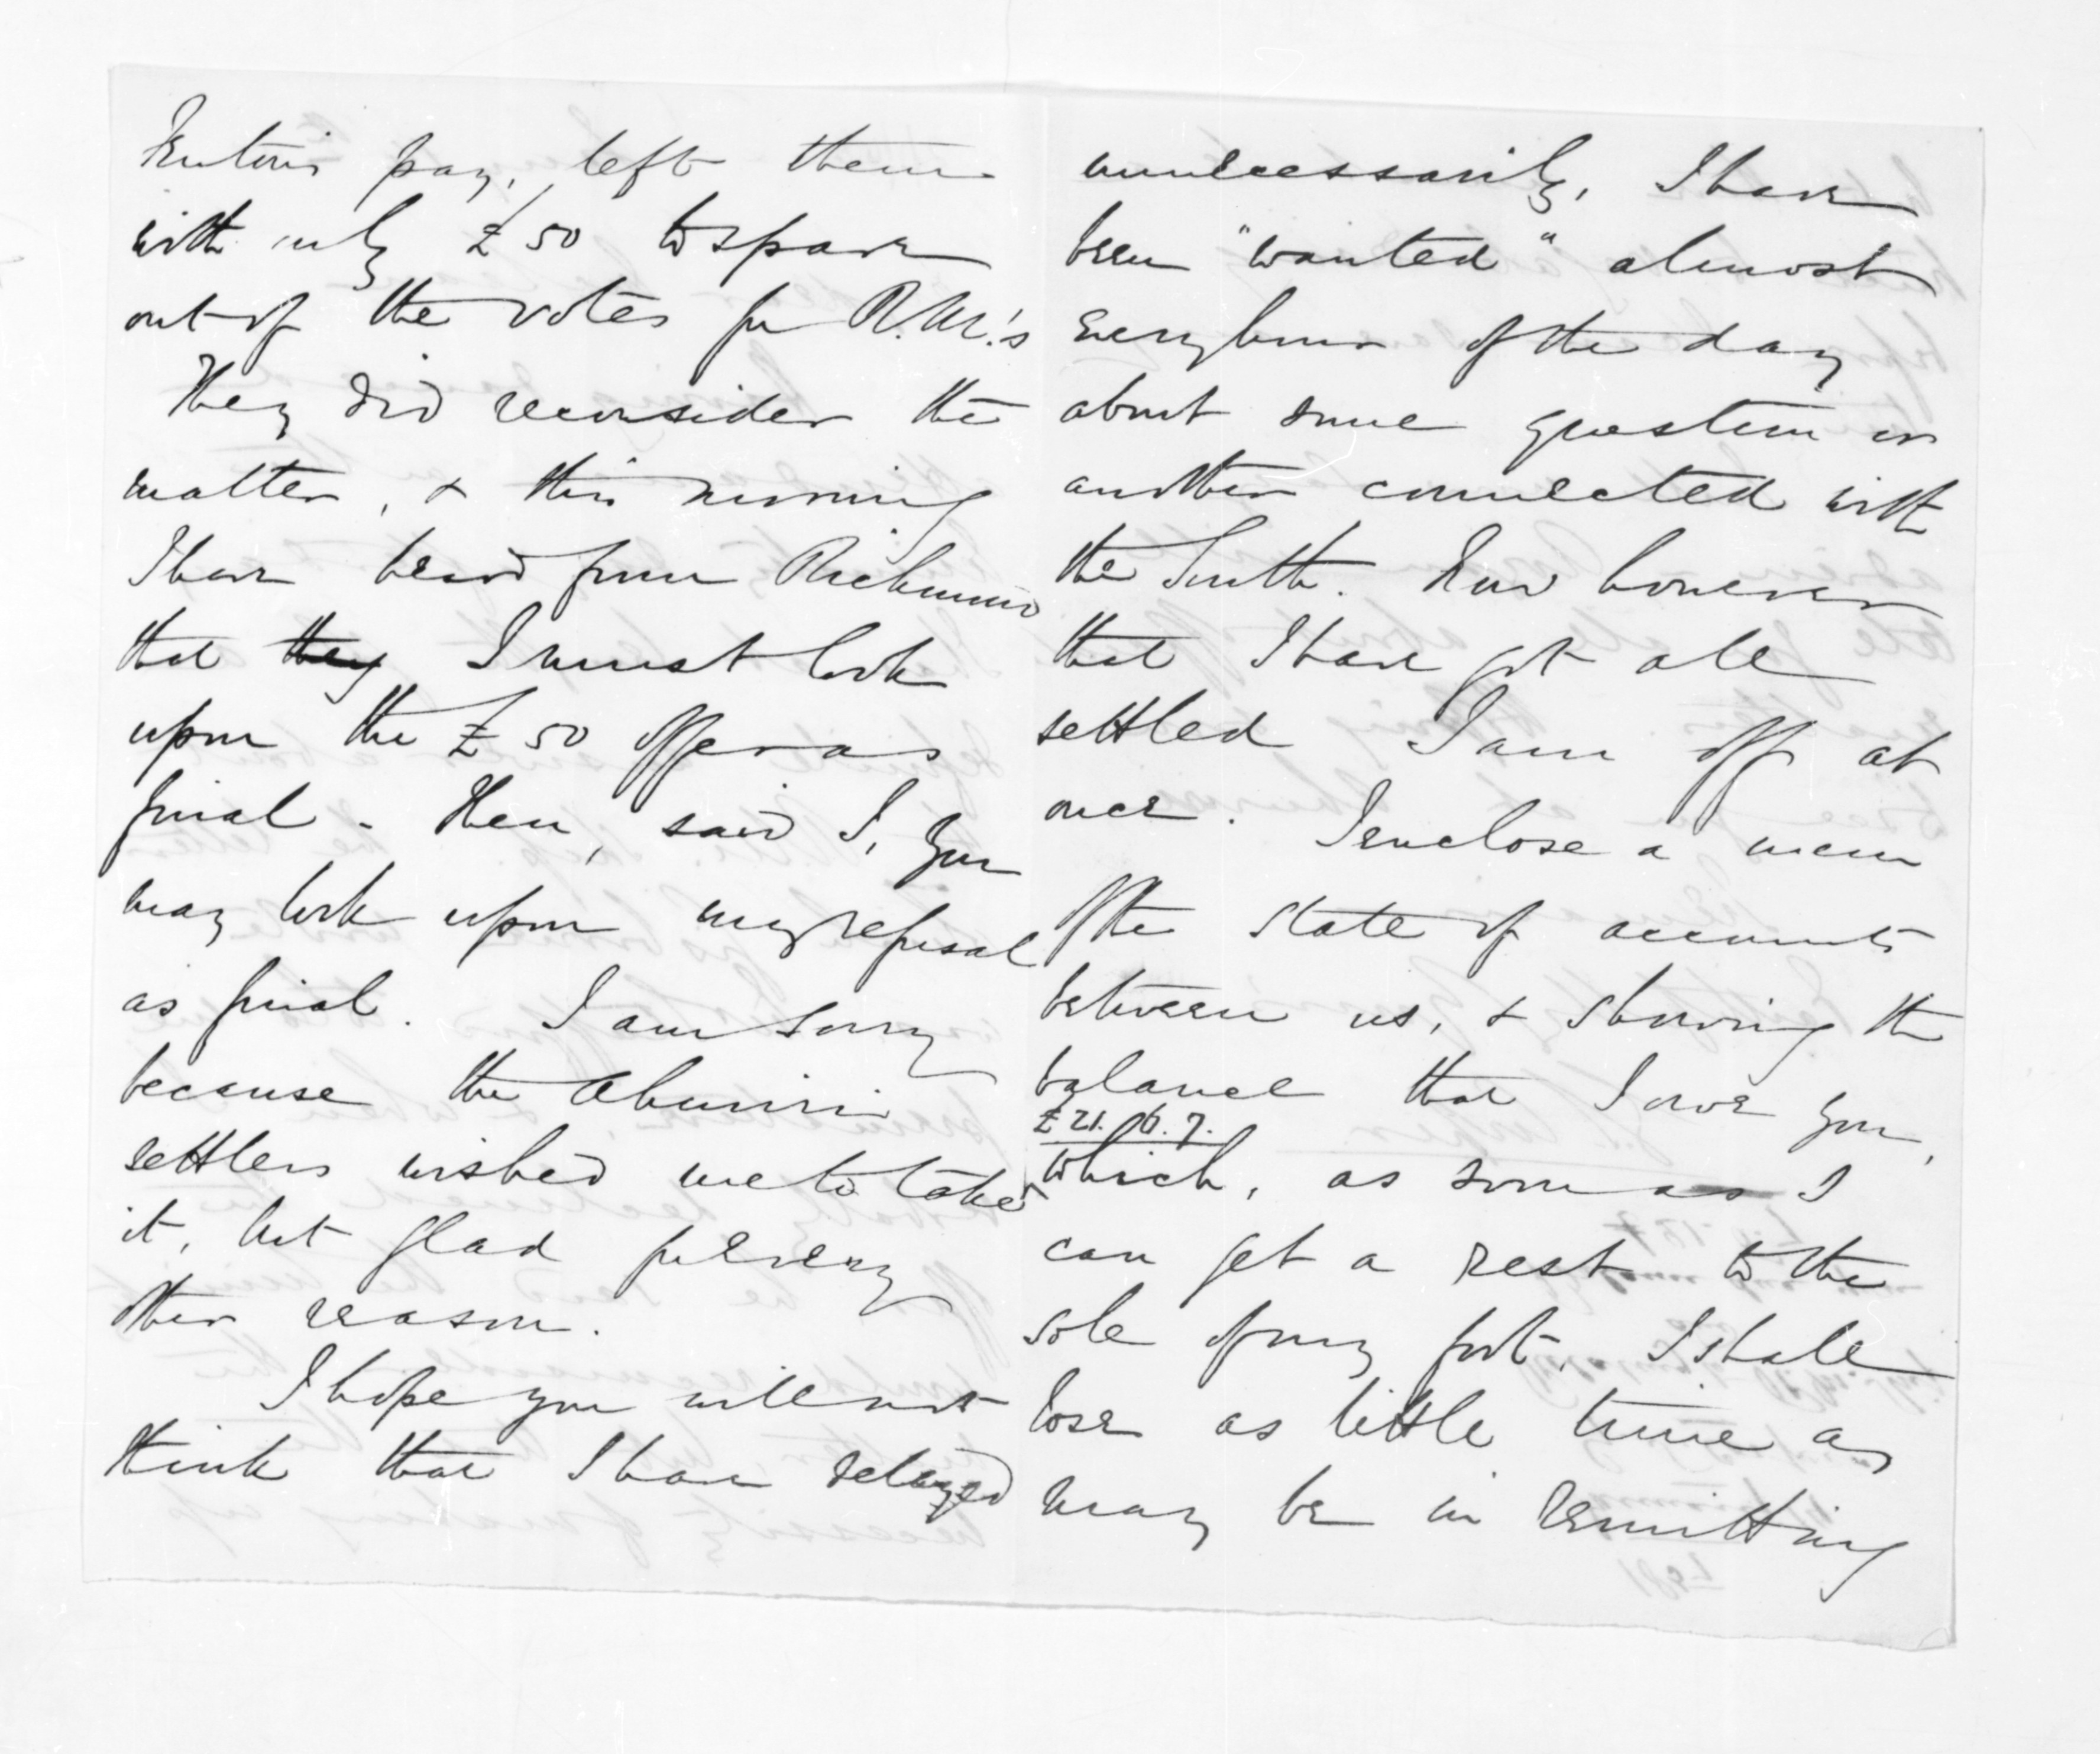 pay, left them
with only £50 to spare
out of the votes for R.M.'s
They did reconsider the
matter, & this morning
I have heard from Richmond
that they I must look
upon the £50 offer as
final - Then, said I, you
may look upon my refusal
as final. I am sorry
because the Ahuriri
settlers wished me to take
it, but glad for every
other reason.
I hope you will not
think that I have delayed
unnecessarily, I have
been "wanted" almost
every hour of the day
about some question or
another connected with
the South. Now however
that I have got all
settled I am off at
once. I enclose a mem
of the state of accounts
between us, & showing the
balance that I owe you,
£21.16.7.
which, as soon as I
can get a rest to the
sole of my foot, I shall
lose as little time as
may be in remitting